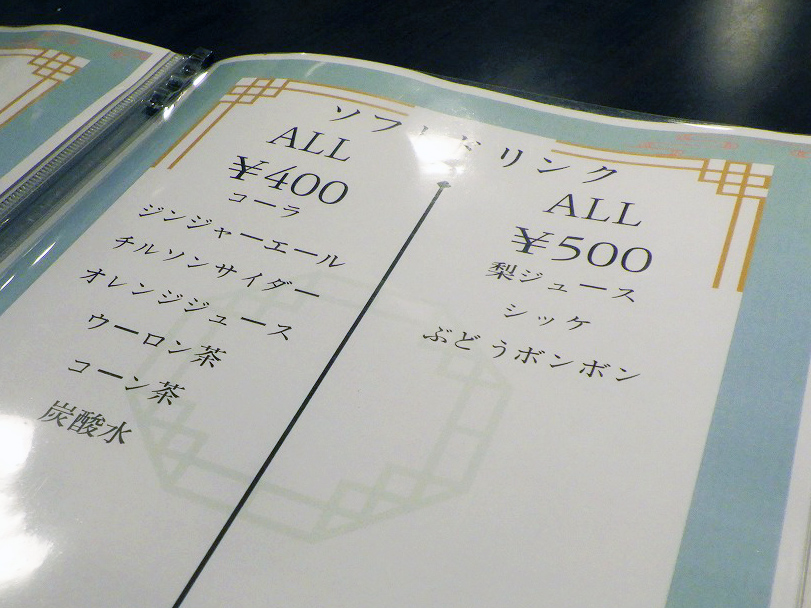 ソフトドリンク
ALL
¥400
コーラ
ジンジャーエール
チルソンサイダー
オレンジジュース
ウーロン茶
コーン茶
炭酸水
ALL
¥500
梨ジュース
シッケ
ぶどうボンボン